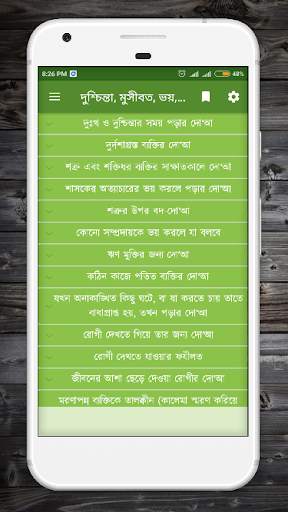 8:26 PM
48%
দুশ্চিন্তা, মুসীবত, ভয়,...
দুঃখ ও দুশ্চিন্তার সময় পড়ার দো'আ
দুর্দশাগ্রস্ত ব্যক্তির দো'আ
শত্রু এবং শক্তিধর ব্যক্তির সাক্ষাতকালে দো'আ
শাসকের অত্যাচারের ভয় করলে পড়ার দো'আ
শত্রুর উপর বদ দো'আ
কোনো সম্প্রদায়কে ভয় করলে যা বলবে
ঋণ মুক্তির জন্য দো'আ
কঠিন কাজে পতিত ব্যক্তির দো'আ
যখন অনাকাঙ্ক্ষিত কিছু ঘটে, বা যা করতে চায় তাতে
বাধাপ্রাপ্ত হয়, তখন পড়ার দো'আ
রোগী দেখতে গিয়ে তার জন্য দো'আ
রোগী দেখতে যাওয়ার ফযীলত
জীবনের আশা ছেড়ে দেওয়া রোগীর দো'আ
মরণাপন্ন ব্যক্তিকে তালক্বীন (কালেমা স্মরণ করিয়ে